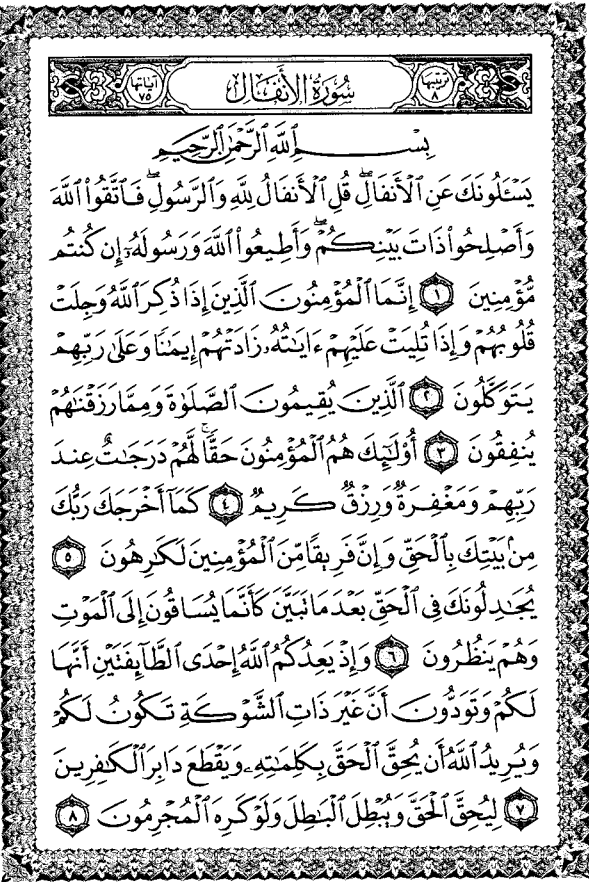 ترتيبها ٨ سُورَةُ الأَنفَال آياتها ٧٥
بِسْمِ ٱللَّهِ ٱلرَّحْمَٰنِ ٱلرَّحِيمِ
يَسْـَٔلُونَكَ عَنِ ٱلْأَنفَالِۖ قُلِ ٱلْأَنفَالُ لِلَّهِ وَٱلرَّسُولِۖ فَٱتَّقُوا۟ ٱللَّهَ
وَأَصْلِحُوا۟ ذَاتَ بَيْنِكُمْۖ وَأَطِيعُوا۟ ٱللَّهَ وَرَسُولَهُۥٓ إِن كُنتُم
مُّؤْمِنِينَ ١ إِنَّمَا ٱلْمُؤْمِنُونَ ٱلَّذِينَ إِذَا ذُكِرَ ٱللَّهُ وَجِلَتْ
قُلُوبُهُمْ وَإِذَا تُلِيَتْ عَلَيْهِمْ ءَايَٰتُهُۥ زَادَتْهُمْ إِيمَٰنًا وَعَلَىٰ رَبِّهِمْ
يَتَوَكَّلُونَ ٢ ٱلَّذِينَ يُقِيمُونَ ٱلصَّلَوٰةَ وَمِمَّا رَزَقْنَٰهُمْ
يُنفِقُونَ ٣ أُو۟لَٰٓئِكَ هُمُ ٱلْمُؤْمِنُونَ حَقًّاۚ لَّهُمْ دَرَجَٰتٌ عِندَ
رَبِّهِمْ وَمَغْفِرَةٌ وَرِزْقٌ كَرِيمٌ ٤ كَمَآ أَخْرَجَكَ رَبُّكَ
مِنۢ بَيْتِكَ بِٱلْحَقِّ وَإِنَّ فَرِيقًا مِّنَ ٱلْمُؤْمِنِينَ لَكَٰرِهُونَ ٥
يُجَٰدِلُونَكَ فِى ٱلْحَقِّ بَعْدَ مَا تَبَيَّنَ كَأَنَّمَا يُسَاقُونَ إِلَى ٱلْمَوْتِ
وَهُمْ يَنظُرُونَ ٦ وَإِذْ يَعِدُكُمُ ٱللَّهُ إِحْدَى ٱلطَّآئِفَتَيْنِ أَنَّهَا
لَكُمْ وَتَوَدُّونَ أَنَّ غَيْرَ ذَاتِ ٱلشَّوْكَةِ تَكُونُ لَكُمْ
وَيُرِيدُ ٱللَّهُ أَن يُحِقَّ ٱلْحَقَّ بِكَلِمَٰتِهِۦ وَيَقْطَعَ دَابِرَ ٱلْكَٰفِرِينَ
٧ لِيُحِقَّ ٱلْحَقَّ وَيُبْطِلَ ٱلْبَٰطِلَ وَلَوْ كَرِهَ ٱلْمُجْرِمُونَ ٨